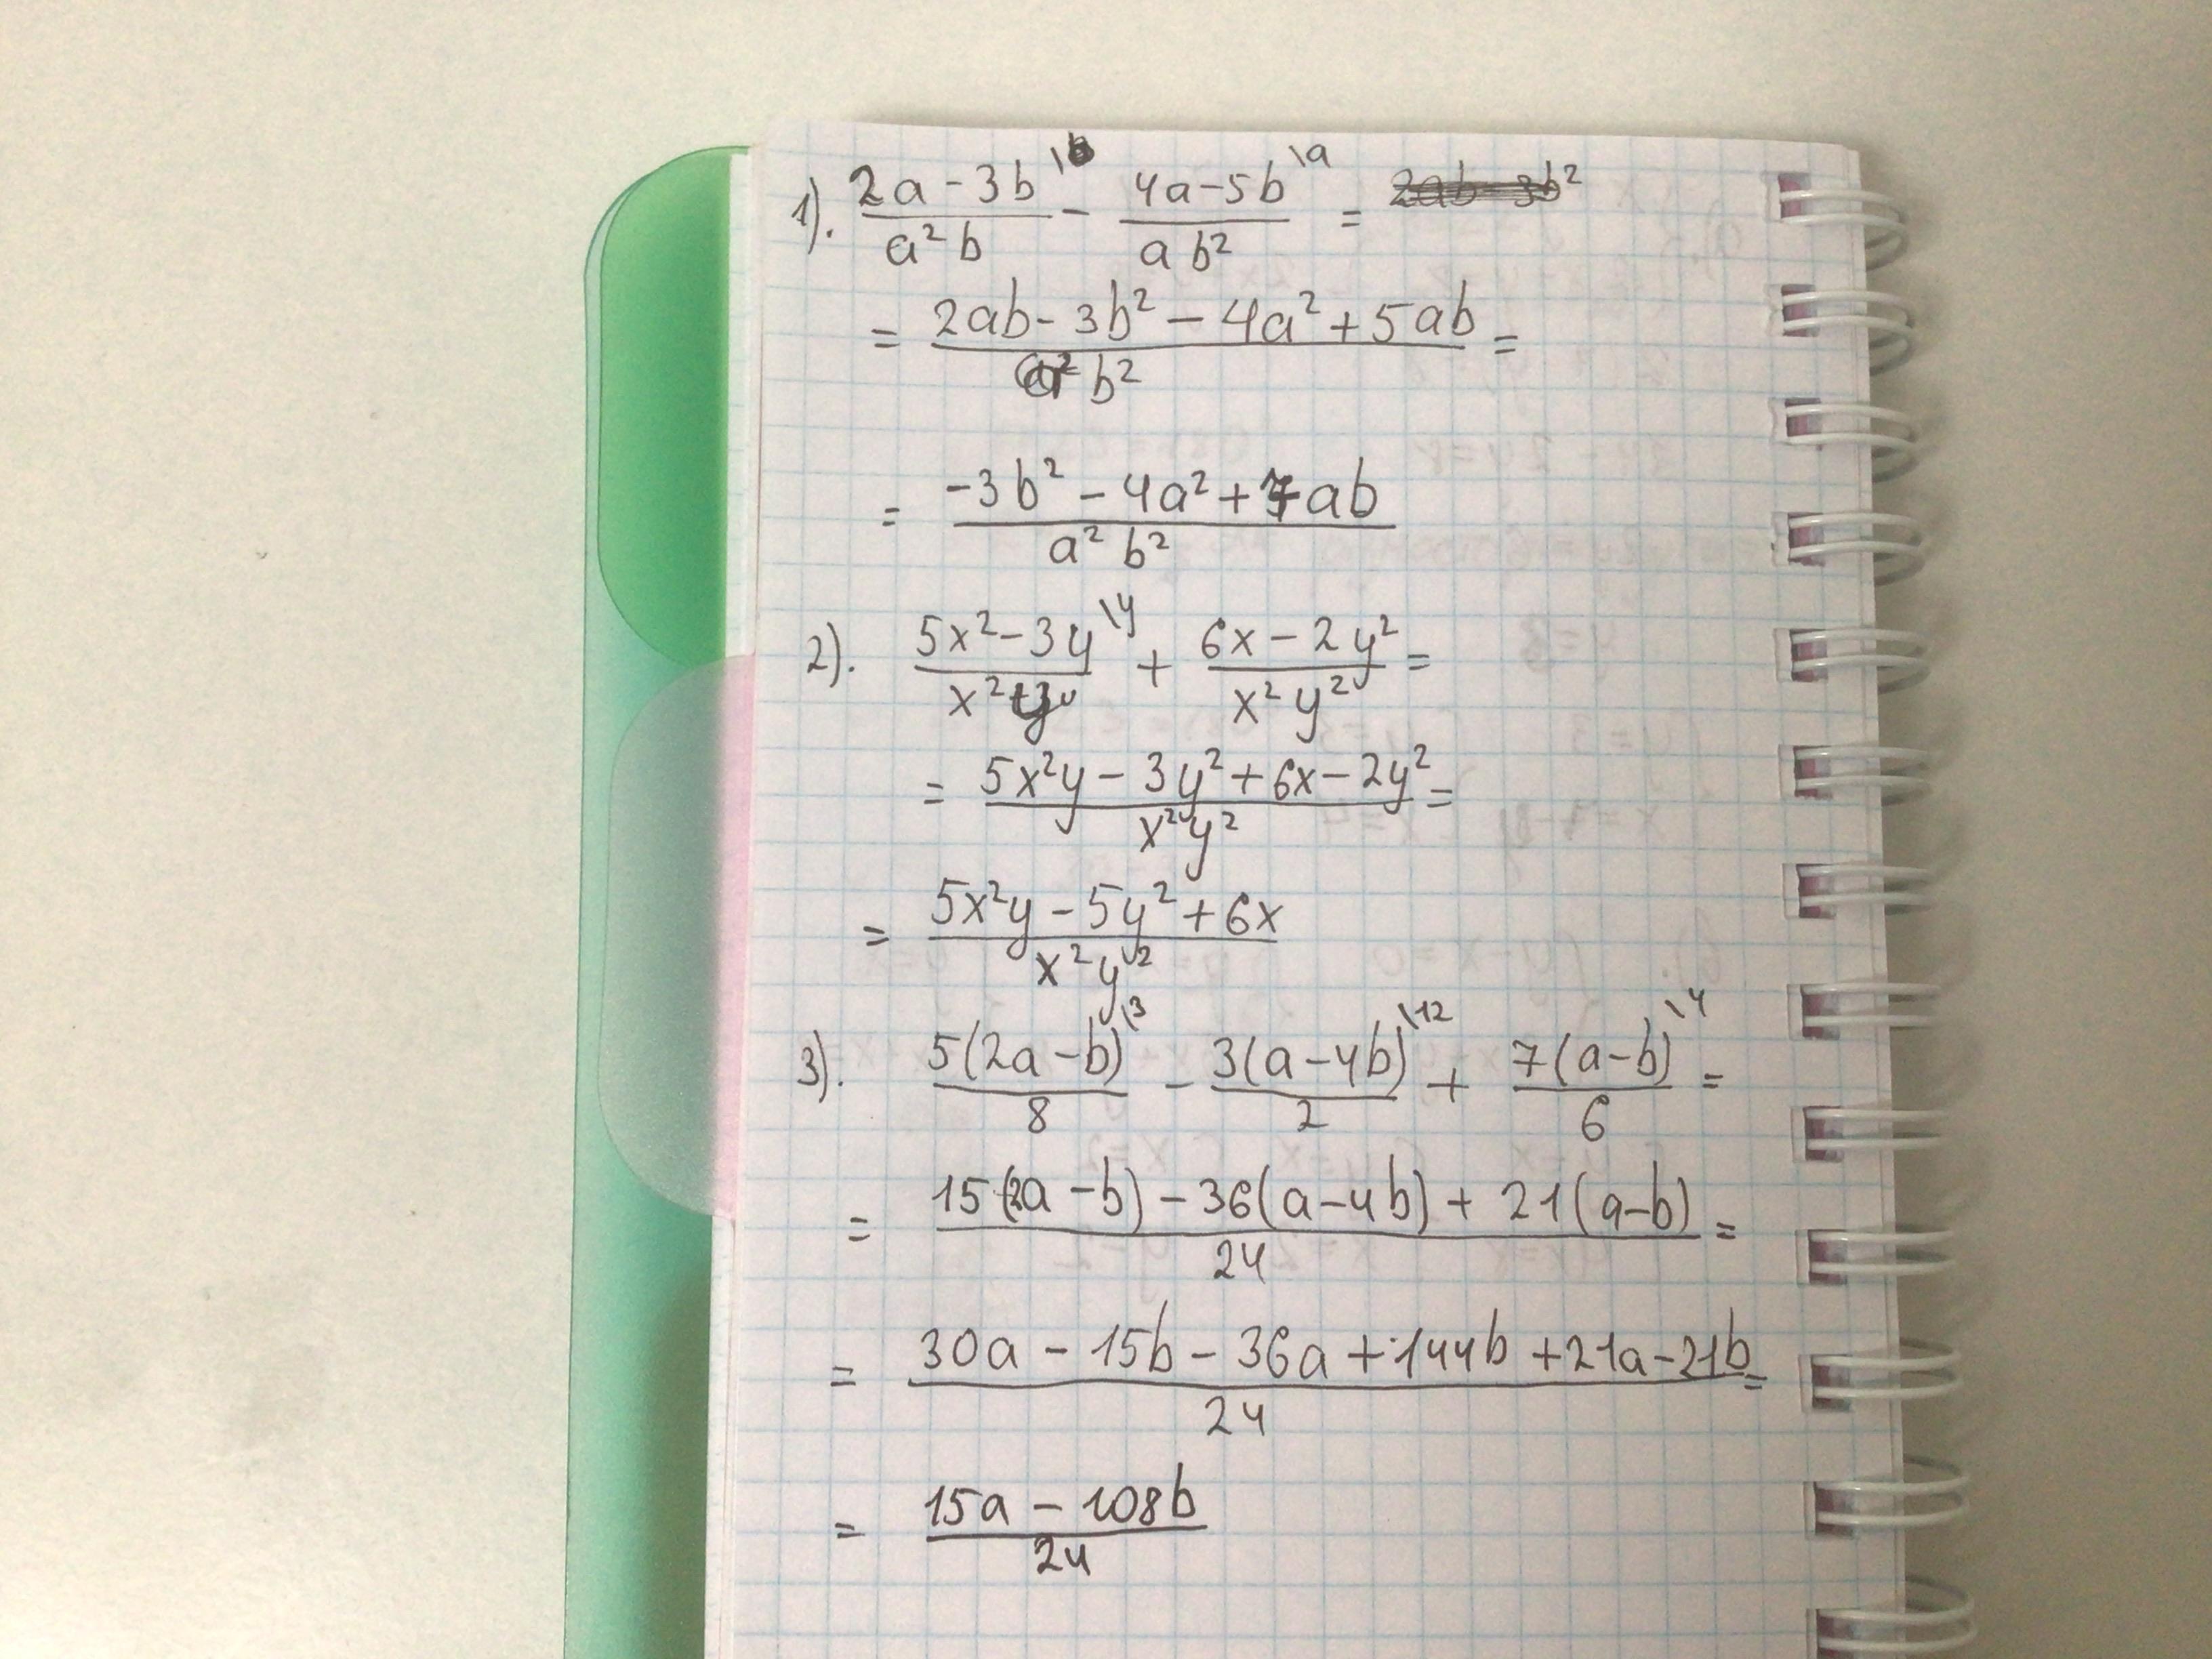 1). (2a-3b)/(a²b) \b - (4a-5b)/(ab²) \a =
= (2ab-3b²-4a²+5ab)/(a²b²) =
= (-3b²-4a²+7ab)/(a²b²)
2). (5x²-3y)/(x²y) \y + (6x-2y²)/(x²y²) =
= (5x²y-3y²+6x-2y²)/(x²y²) =
= (5x²y-5y²+6x)/(x²y²)
3). 5(2a-b)/8 \3 - 3(a-4b)/2 \12 + 7(a-b)/6 \4 =
= (15(2a-b)-36(a-4b)+21(a-b))/24 =
= (30a-15b-36a+144b+21a-21b)/24 =
= (15a-108b)/24